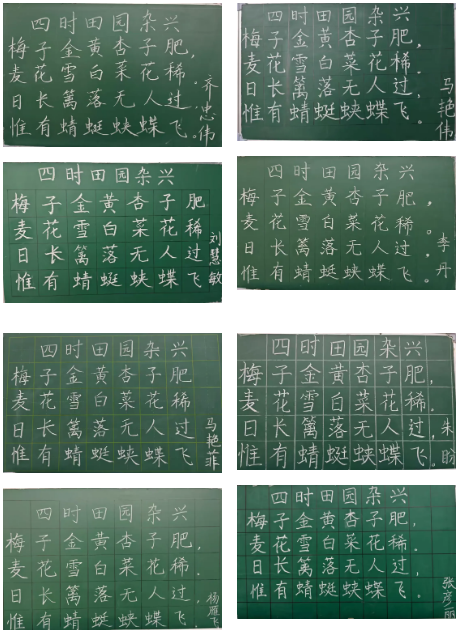 四时田园杂兴
梅子金黄杏子肥,
麦花雪白菜花稀.
日长篱落无人过,
惟有蜻蜓蛱蝶飞。
齐忠伟
四时田园杂兴
梅子金黄杏子肥,
麦花雪白菜花稀.
日长篱落无人过,
惟有蜻蜓蛱蝶飞。
马艳伟
四时田园杂兴
梅子金黄杏子肥
麦花雪白菜花稀
日长篱落无人过
惟有蜻蜓蛱蝶飞
刘慧敏
四时田园杂兴
梅子金黄杏子肥,
麦花雪白菜花稀。
日长篱落无人过,
惟有蜻蜓蛱蝶飞。
李丹
四时田园杂兴
梅子金黄杏子肥
麦花雪白菜花稀
日长篱落无人过
惟有蜻蜓蛱蝶飞
马艳菲
四时田园杂兴
梅子金黄杏子肥,
麦花雪白菜花稀.
日长篱落无人过,
惟有蜻蜓蛱蝶飞.
朱盼
四时田园杂兴
梅子金黄杏子肥,
麦花雪白菜花稀.
日长篱落无人过,
惟有蜻蜓蛱蝶飞.
杨雁飞
四时田园杂兴
梅子金黄杏子肥,
麦花雪白菜花稀.
日长篱落无人过,
惟有蜻蜓蛱蝶飞.
张彦丽